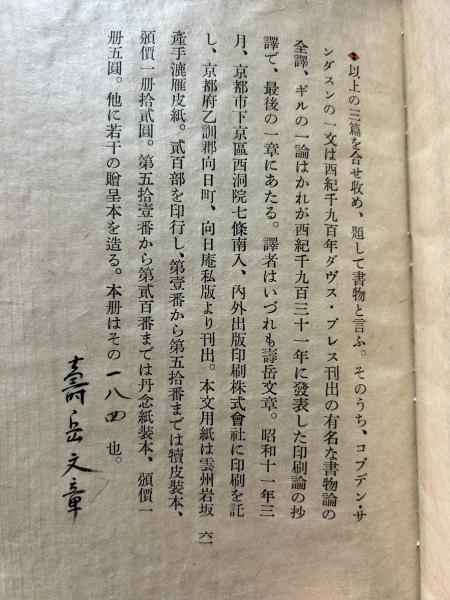 以上の三篇を合せ收め、題して書物と言ふ。そのうち、コブデン・サ
ンダスンの一文は西紀千九百年ダヴス・プレス刊出の有名な書物論の
全譯、ギルの一論はかれが西紀千九百三十一年に發表した印刷論の抄
譯で、最後の一章にあたる。譯者はいづれも壽岳文章。昭和十一年三
月、京都市下京區西洞院七條南入、內外出版印刷株式會社に印刷を託
し、京都府乙訓郡向日町、向日庵私版より刊出。本文用紙は雲州岩坂
產手漉雁皮紙。貳百部を印行し、第壹番から第五拾番までは犢皮裝本、
頒價一册拾貳圓。第五拾壹番から第貳百番までは丹念紙裝本、頒價一
册五圓。他に若干の贈呈本を造る。本册はその一八四也。
壽岳文章
六一